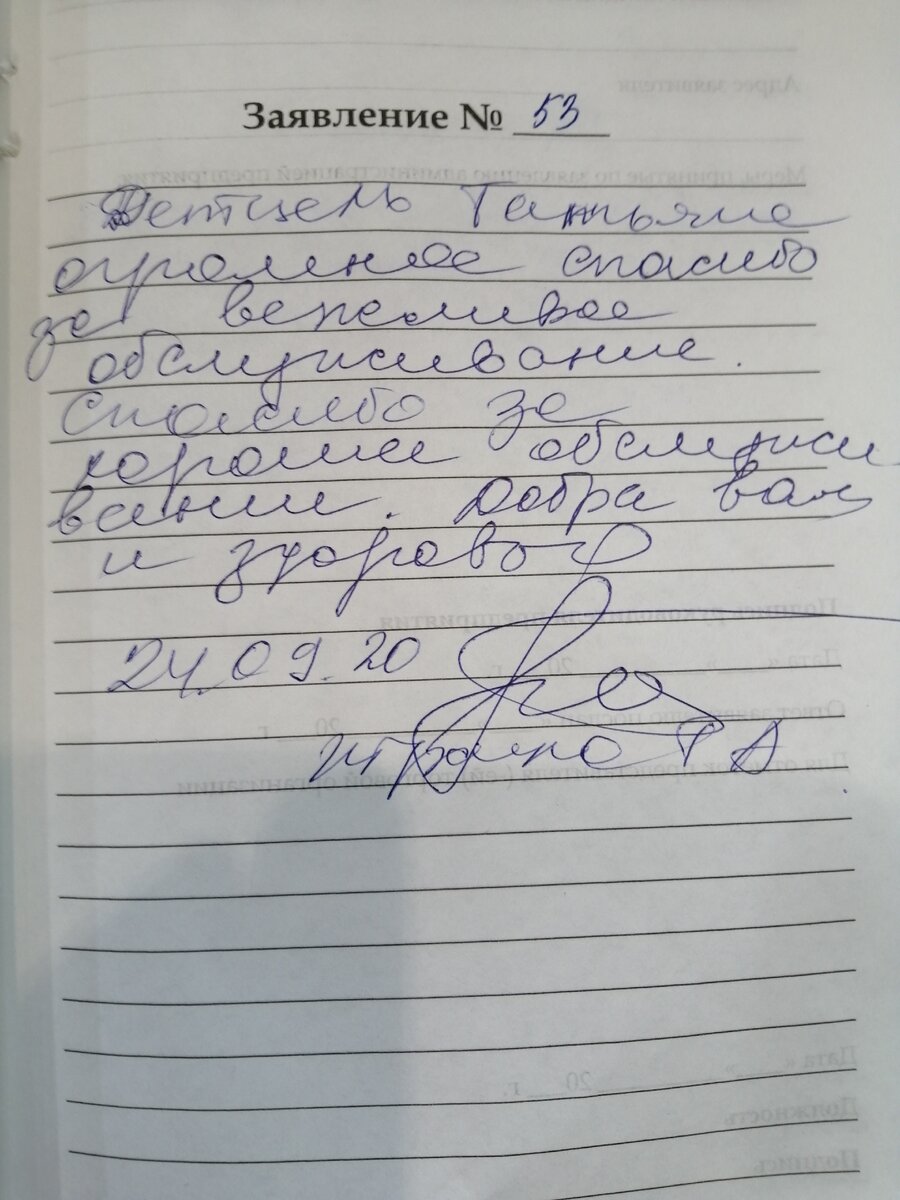 Заявление № 53
Детцель Татьяне
огромное спасибо
за вежливое
обслуживание.
Спасибо за
хорошее обслужи
вание. Добра вам
и здоровья
24.09.20
Т А